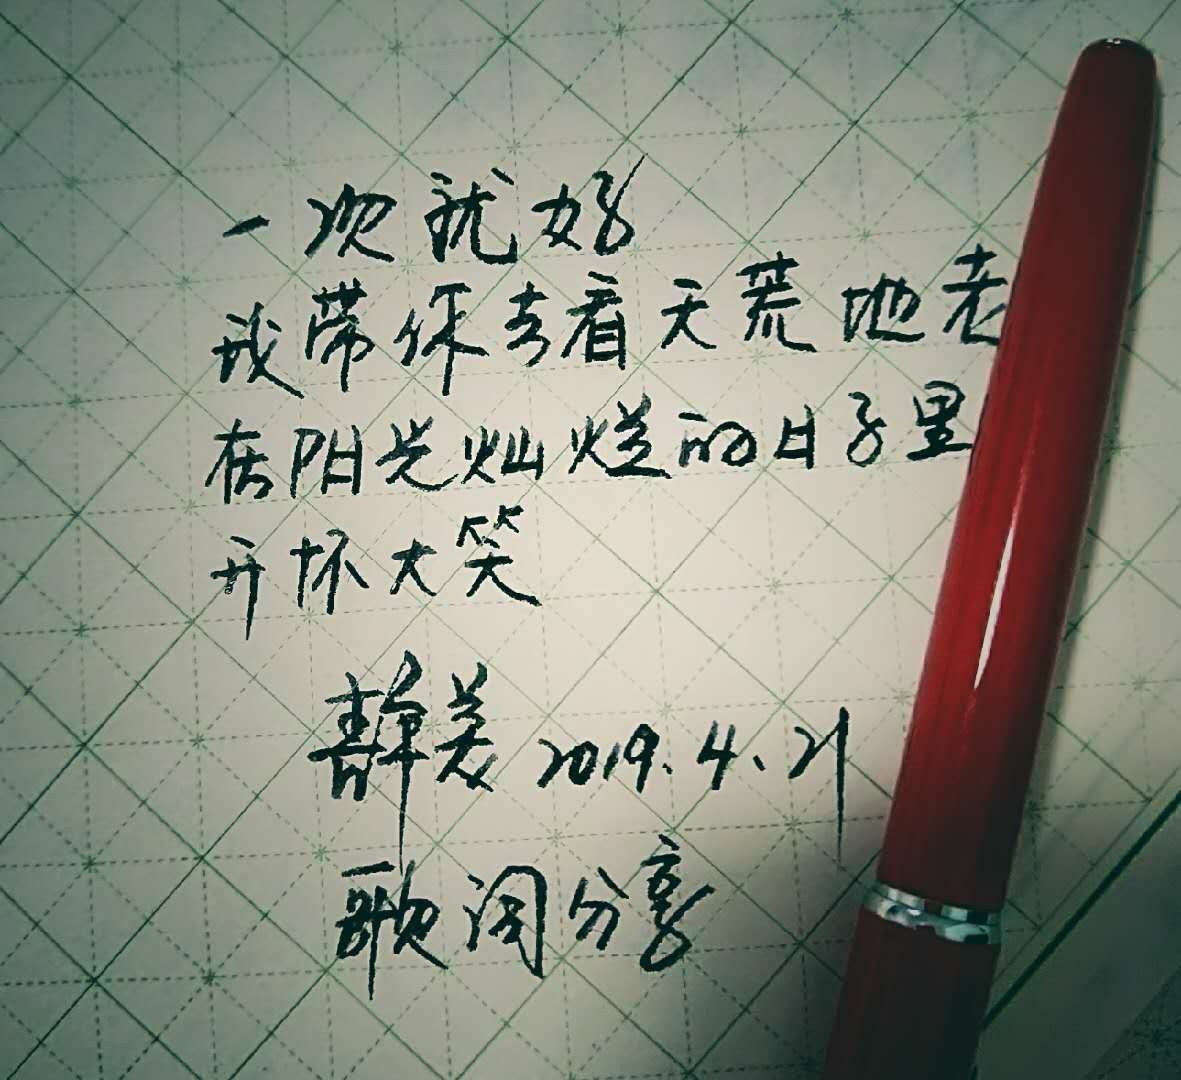 一次就好
我带你去看天荒地老
在阳光灿烂的日子里
开怀大笑
静美 2019.4.21
歌词分享